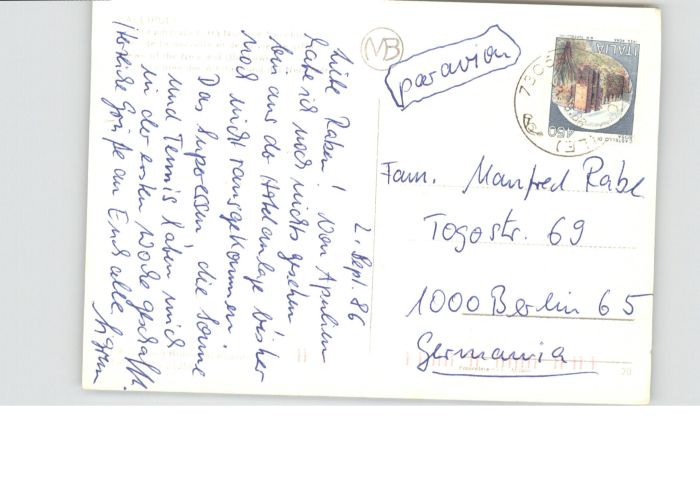 2. Sept. 86
Liebe Raben! Von Apulien
habe ich noch nichts gesehen
bin aus der Hotelanlage bisher
noch nicht rausgekommen.
Das Superessen, die Sonne
und Tennis haben mich
in der ersten Woche geschafft.
Herzliche Grüße an Euch alle
MB
par avion
ITALIA
450
Fam. Manfred Rabe
Togostr. 69
1000 Berlin 65
Germania